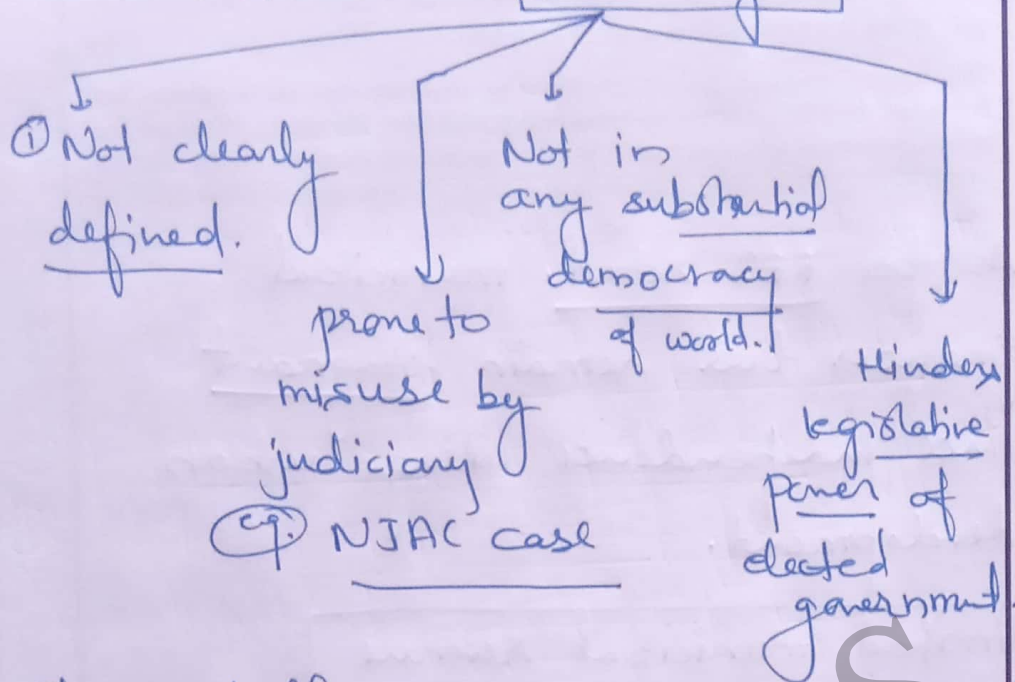 ① Not clearly
defined.
prone to
misuse by
judiciary
eg. NJAC case
Not in
any substantial
democracy
of world.
Hinders
legislative
power of
elected
government